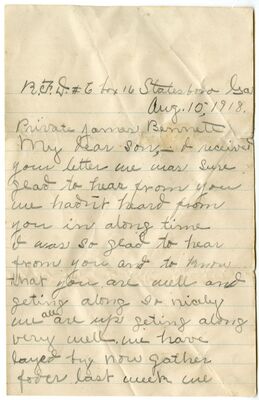 R.F.D. # 6 box 16 Statesboro Ga
Aug. 10, 1918.
Private James Bennett
My Dear son,— I received
your letter we was sure
glad to hear from you
we hadn't heard from
you in along time
I was so glad to hear
from you and to know
that you are well and
geting along so nicely
we all are up geting along
very well, we have
layed by now gather
foder last week we